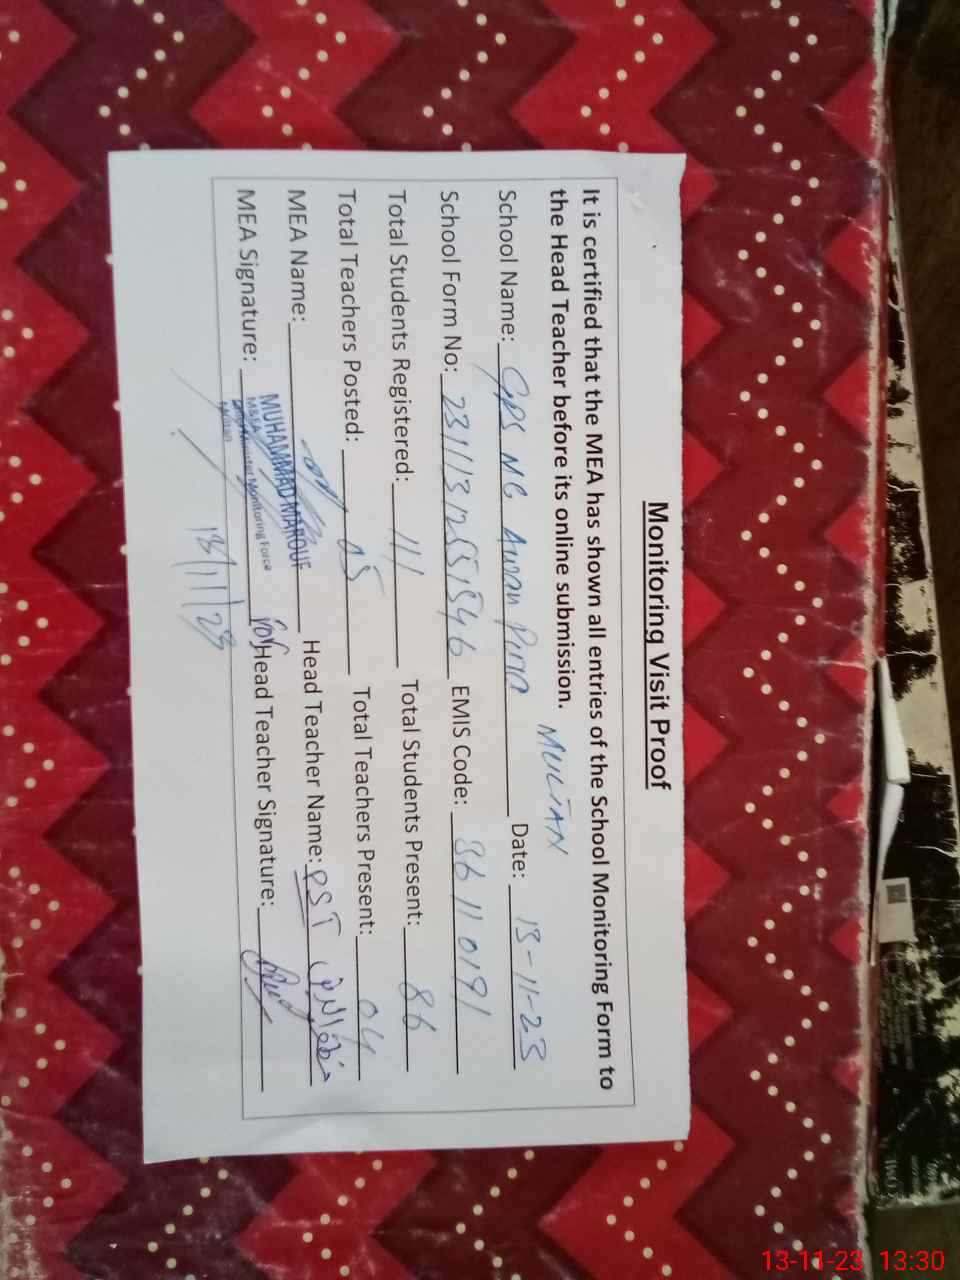 Monitoring Visit Proof
It is certified that the MEA has shown all entries of the School Monitoring Form to
the Head Teacher before its online submission.
MULTAN
School Name: GPS NC Awan Pura Date: 13-11-23
School Form No: 23111312551546 EMIS Code: 36110191
Total Students Registered: 111 Total Students Present: 86
Total Teachers Posted: 05 Total Teachers Present: 04
MEA Name: MUHAMMAD MAROUF Head Teacher Name: PST
MEA Signature: M&EA Monitoring Force for Head Teacher Signature:
Multan
13/11/23
13-11-23 13:30